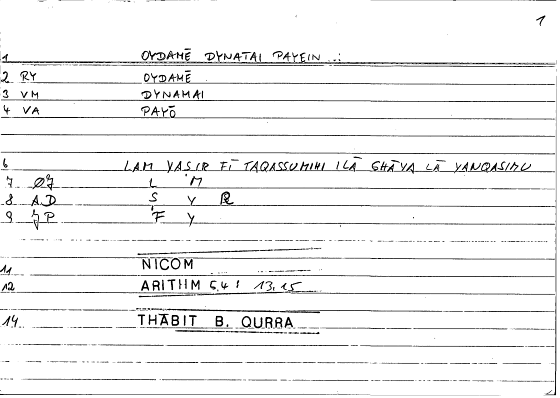 1
1 OYDAMĒ DYNATAI PAYEIN ..:
2 RY OYDAMĒ
3 VM DYNAMAI
4 VA PAYŌ
6 LAM YASIR FĪ TAQASSUMIHI ILĀ GHĀYA LĀ YANQASIMU
7 ØJ L M
8 AD S Y R
9 JP F Y
11 NICOM
12 ARITHM 6.4 : 13.15
14 THĀBIT B. QURRA